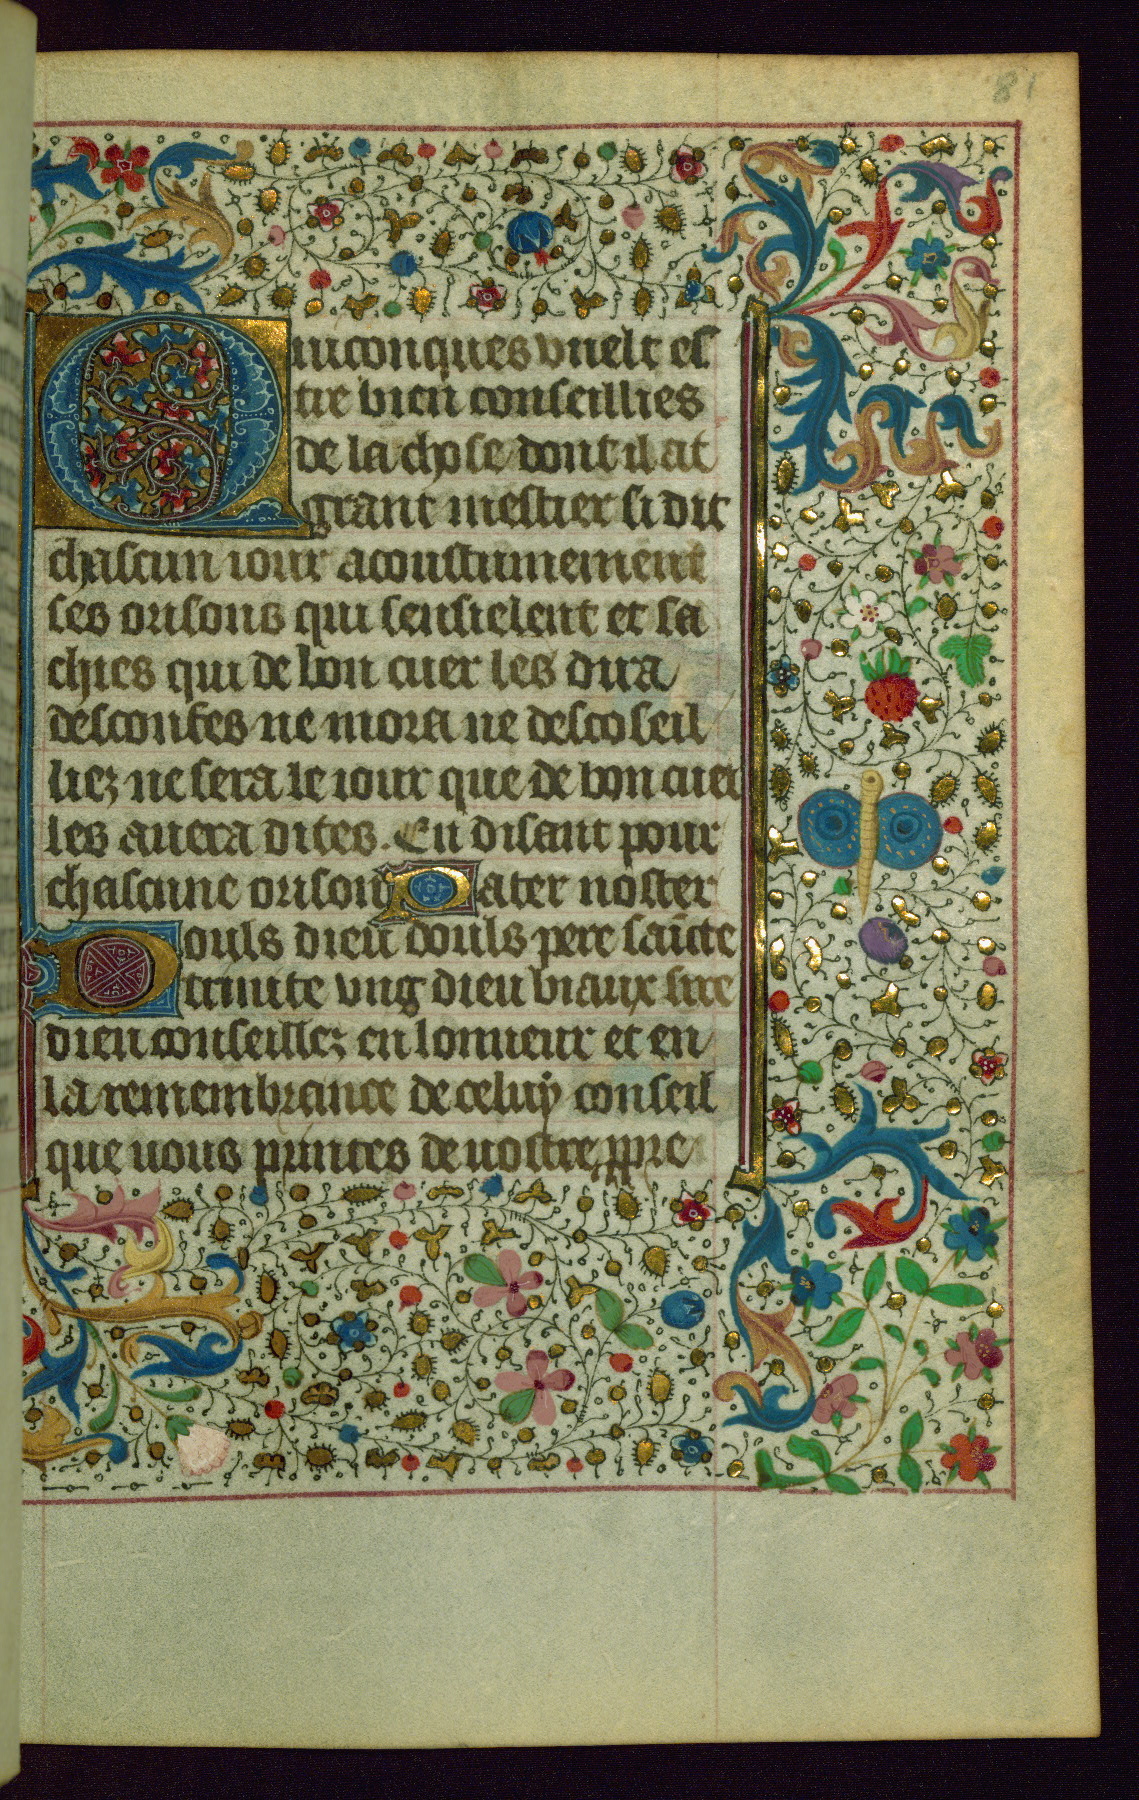 81
Quiconques vuelt es
tre bien conseillies
de la chose dont il at
grant mestier si dit
chascun iour acoustumement
ses orisons qui sensielent et sa
chies qui de bon cuer les dira
desconfes ne mora ne descoseil
liez ne sera le iour que de bon cuer
les auera dites. En disant pour
chascune orison Pater noster
Douls dieu douls pere saīcte
trinite vng dieu biaux sire
dieu conseillez en lonneur et en
la remembrance de celuy conseil
que uous princes de uostre ppre